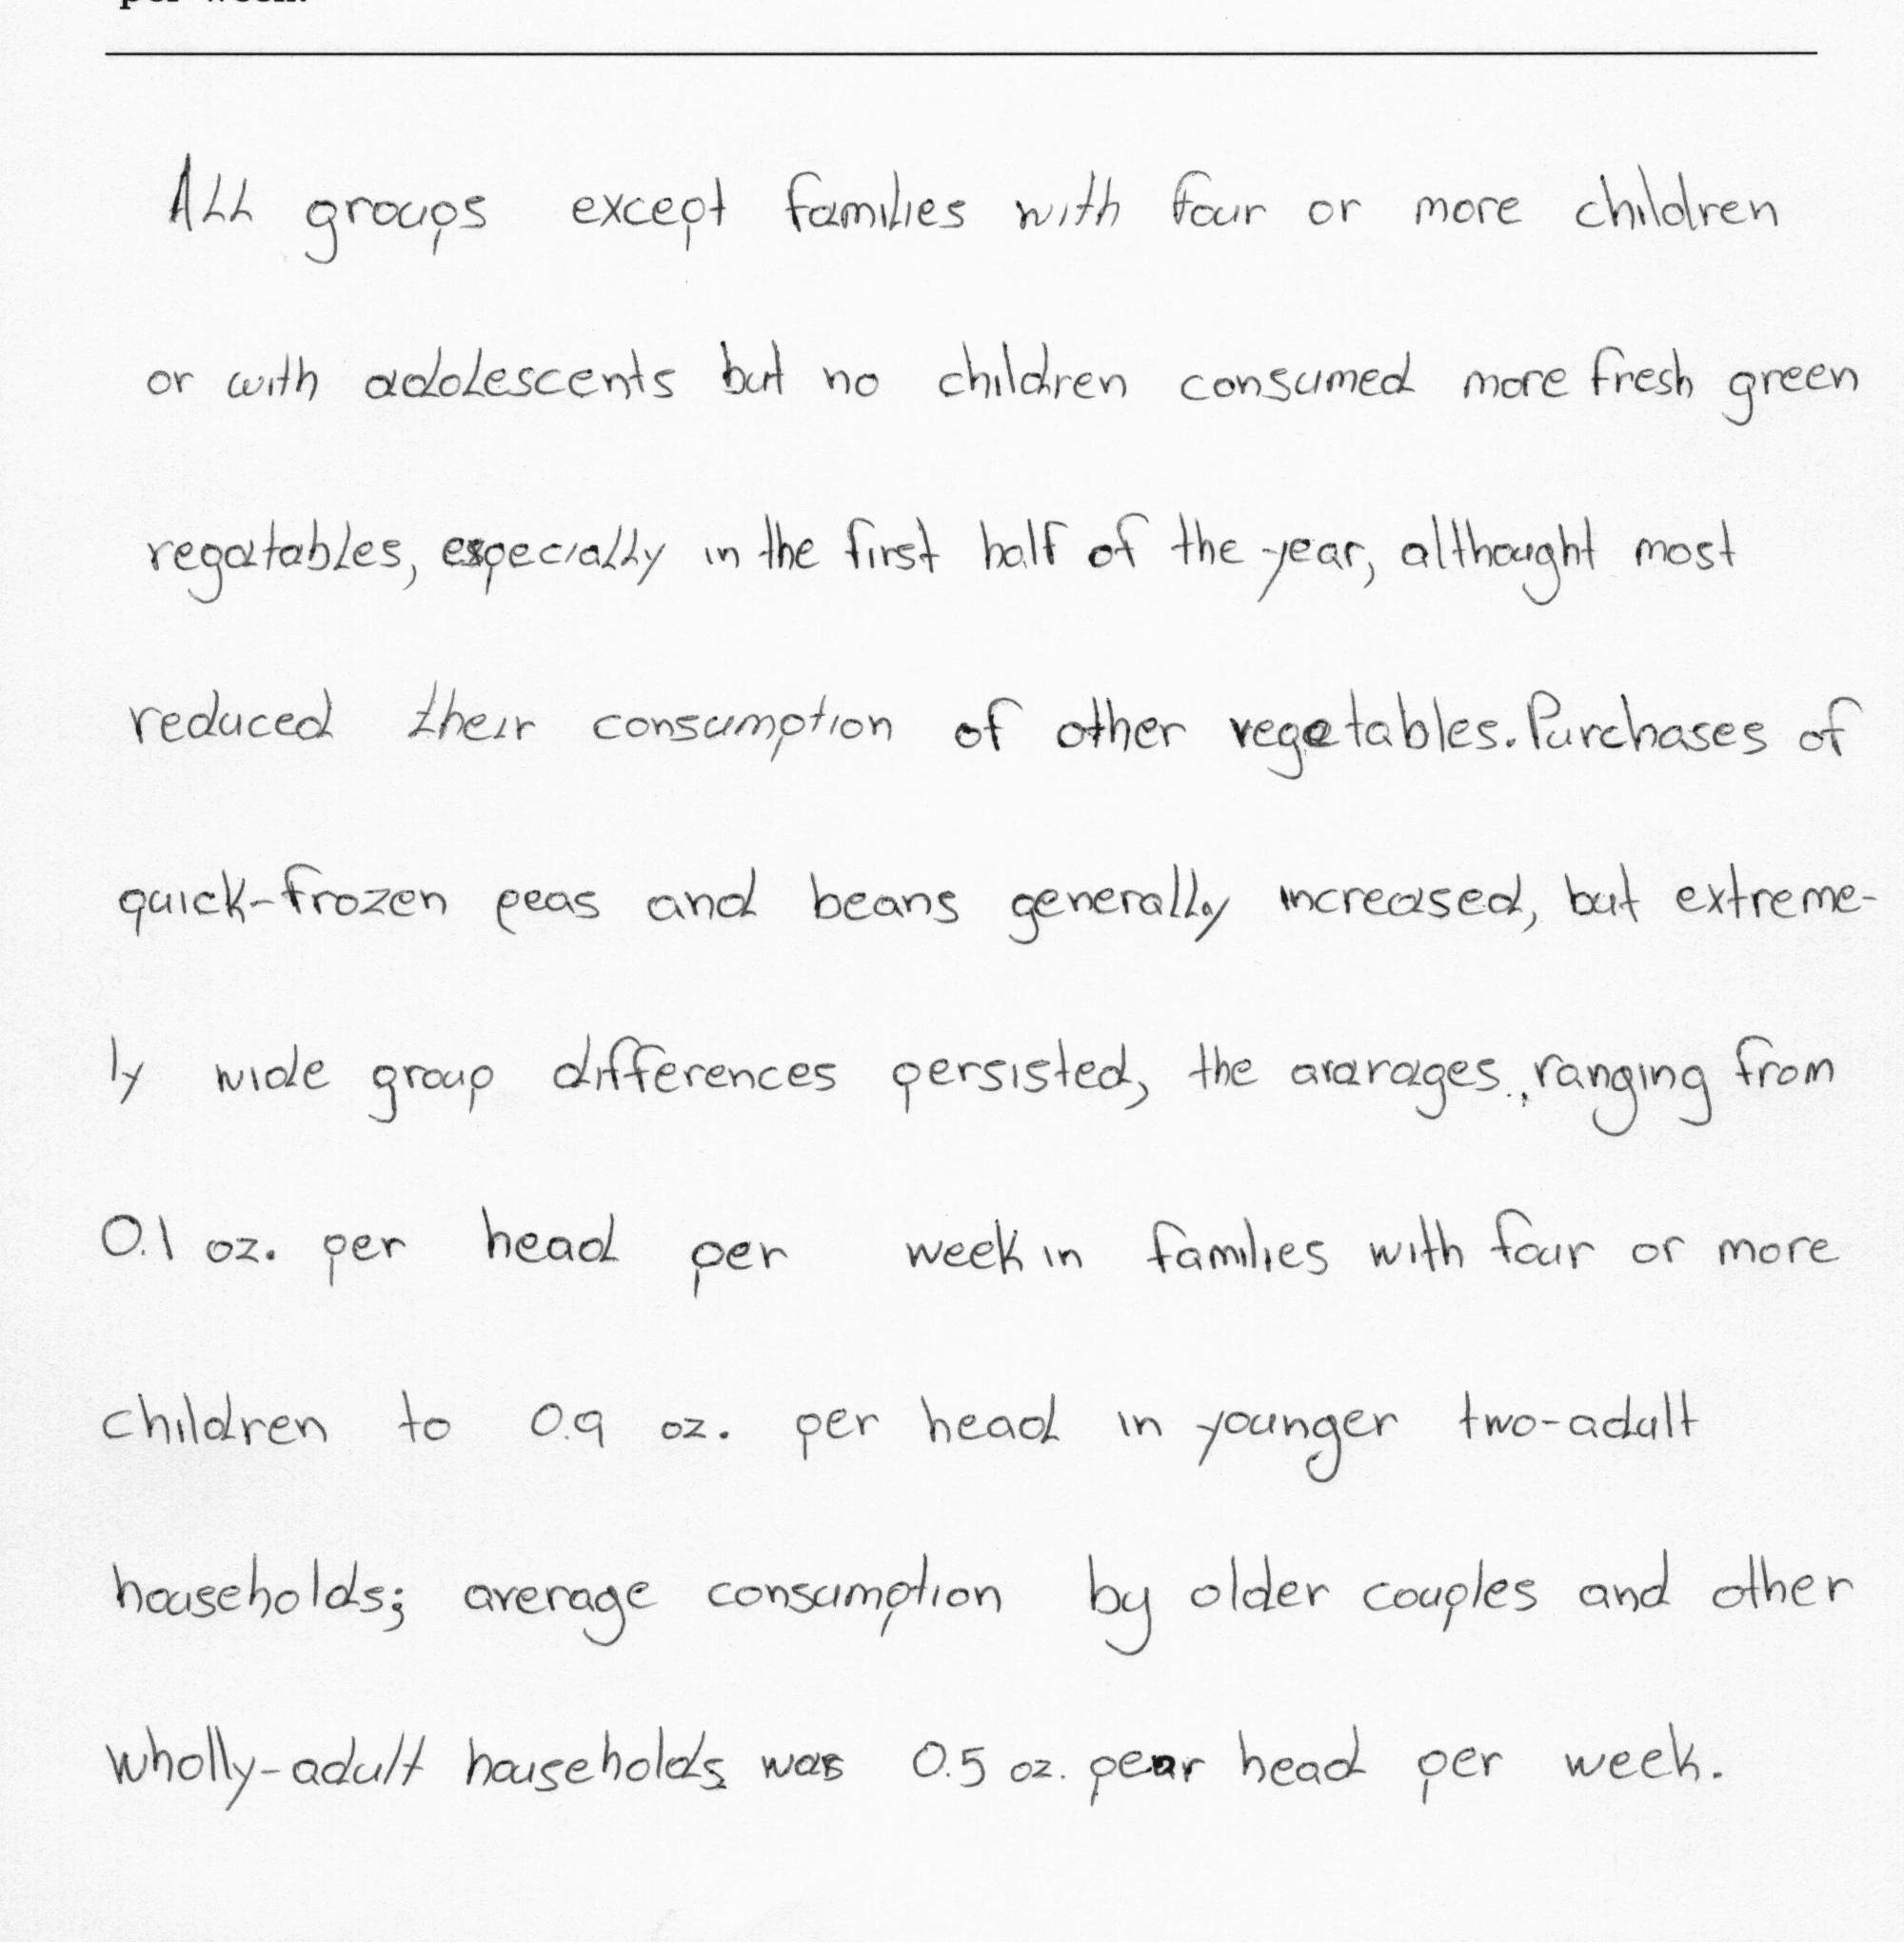 per week.
All groups except families with four or more children
or with adolescents but no children consumed more fresh green
vegatables, especially in the first half of the year, althought most
reduced their consumption of other vegetables. Purchases of
quick-frozen peas and beans generally increased, but extreme-
ly wide group differences persisted, the avarages, ranging from
0.1 oz. per head per week in families with four or more
children to 0.9 oz. per head in younger two-adult
households; average consumption by older couples and other
wholly-adult households was 0.5 oz. pear head per week.